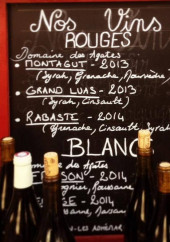 Nos Vins
ROUGES
Domaine des Agates
• MONTAGUT - 2013
(Syrah, Grenache, Mourvèdre)
• GRAND LUAS - 2013
(Syrah, Cinsault)
• RABASTE - 2014
(Grenache, Cinsault, Syrah
BLANC
Domaine des Agates
SON - 2014
Roussane
GE - 2014